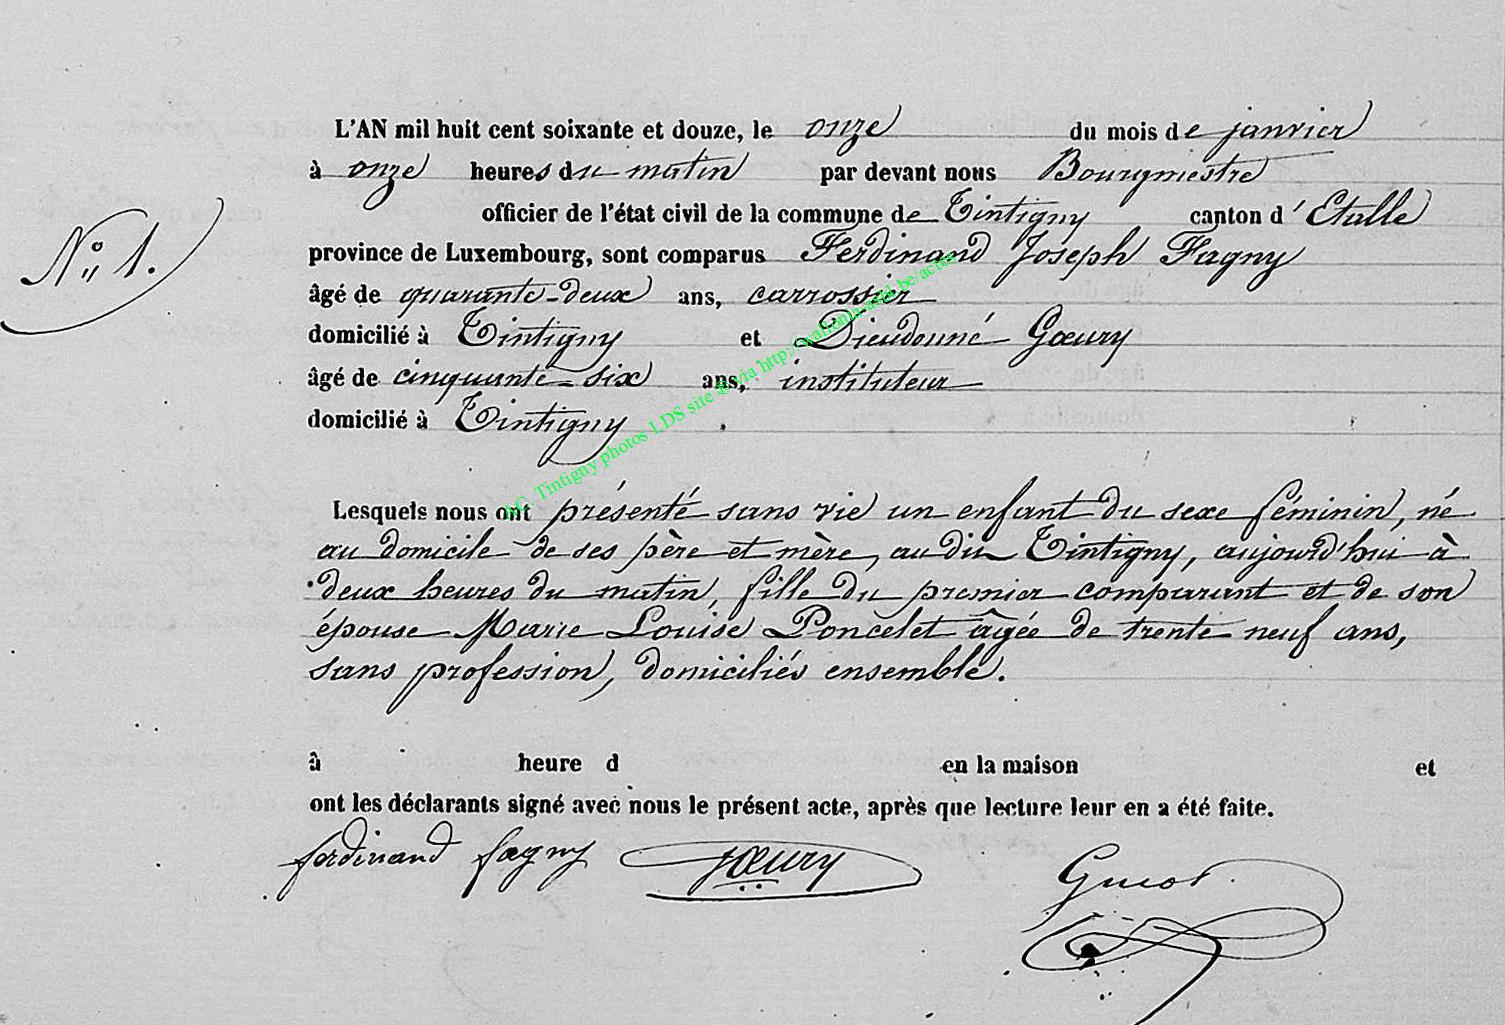 L'AN mil huit cent soixante et douze, le onze du mois de janvier
à onze heures du matin par devant nous Bourgmestre
officier de l'état civil de la commune de Tintigny canton d'Etalle
N° 1.
province de Luxembourg, sont comparus Ferdinand Joseph Fagny
âgé de quarante-deux ans, carrossier
domicilié à Tintigny et Dieudonné Gœury
âgé de cinquante-six ans, instituteur
domicilié à Tintigny .
AC. Tintigny photos LDS site & via http://wallonia-asbl.be/actes
Lesquels nous ont présenté sans vie un enfant du sexe féminin, né
au domicile de ses père et mère, au dit Tintigny, aujourd'hui à
deux heures du matin, fille du premier comparant et de son
épouse Marie Louise Poncelet âgée de trente neuf ans,
sans profession, domiciliés ensemble.
à heure d en la maison et
ont les déclarants signé avec nous le présent acte, après que lecture leur en a été faite.
ferdinand fagny Gœury